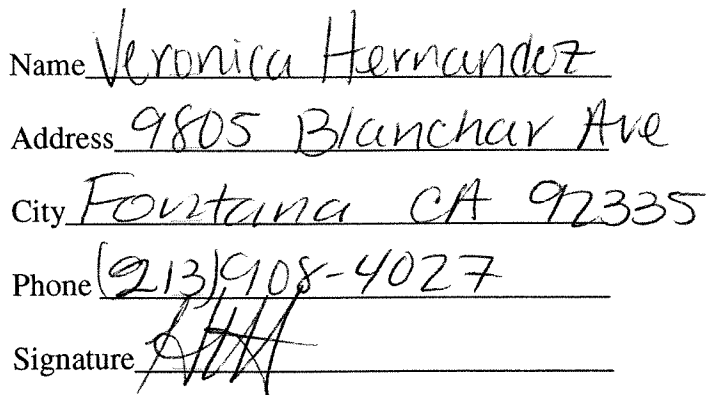 Name Veronica Hernandez
Address 9805 Blanchar Ave
City Fontana CA 92335
Phone (213)908-4027
Signature